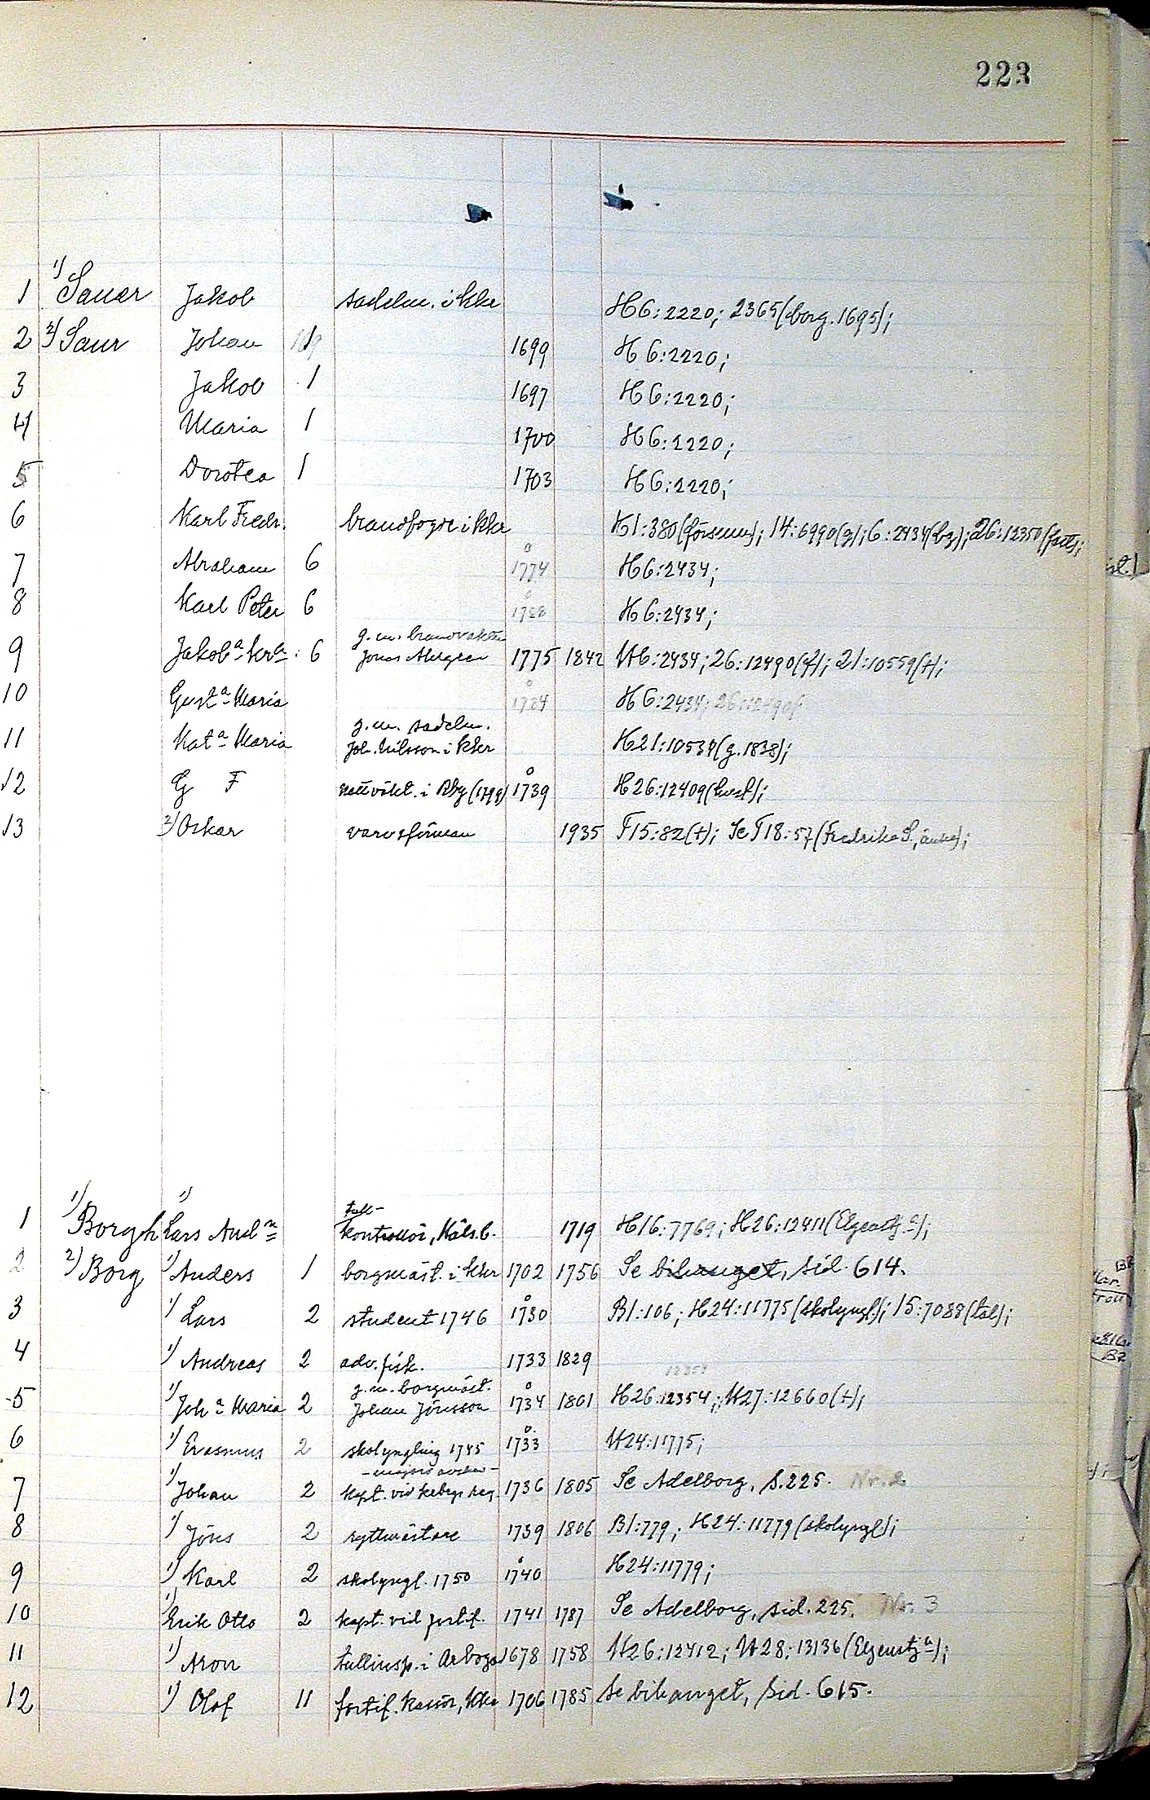 223
1 1) Sauer Jakob sadelm. i kkr H6:2220; 2365 (borg. 1695);
2 2) Saur Johan 1 1699 H6:2220;
3 Jakob 1 1697 H6:2220;
4 Maria 1 1700 H6:2220;
5 Dorotea 1 1703 H6:2220;
6 Karl Fredr. brandfogde i kkr H1:380 ; 14:6990(g); 6:2434(bg); 26:12350
7 Abraham 6 1774 H6:2434;
8 Karl Peter 6 1788 H6:2434;
g.m. brandvakten
9 Jakob:a Kr:a 6 Jonas Ahlgren 1775 1842 H6:2434; 26:12490(f); 21:10559(†);
10 Gust:a Maria 1784 H6:2434; 26:12490f
g.m. sadelm.
11 Kat:a Maria Joh. Nilsson i kkr H21:10534 (g. 1838);
12 G F i Rby 1739 H26:12409
13 2) Oskar varvsförman 1935 F15:82(†); Se F18:57 (Fredrika S., änka);
tull-
1 1) Borgh 1) Lars And:n kontrollör, Kals. 1719 H16:7769; H26:12411
2 2) Borg 1) Anders 1 borgmäst. i kkr 1702 1756 Se bihanget, sid. 614.
3 1) Lars 2 student 1746 1730 B1:106; H24:11775 (skolyngl.); 15:7088
4 1) Andreas 2 adv.fisk. 1733 1829
12353
g.m. borgmäst.
5 1) Joh:a Maria 2 Johan Jönsson 1734 1801 H26:12354; H27:12660(†);
6 1) Erasmus 2 skolyngling 1745 1733 H24:11775;
7 1) Johan 2 kapt. vid 1736 1805 Se Adelborg, s. 225. Nr. 2
8 1) Jöns 2 ryttmästare 1739 1806 B1:779; H24:11779 (skolyngl);
9 1) Karl 2 skolyngl. 1750 1740 H24:11779;
10 1) Erik Otto 2 kapt. vid fortif. 1741 1787 Se Adelborg, sid. 225. Nr. 3
11 1) Aron tullinsp. i Arboga 1678 1758 H26:12412; H28:13136
12 1) Olof 11 fortif. kassör, kkr 1706 1785 Se bihanget, sid. 615.